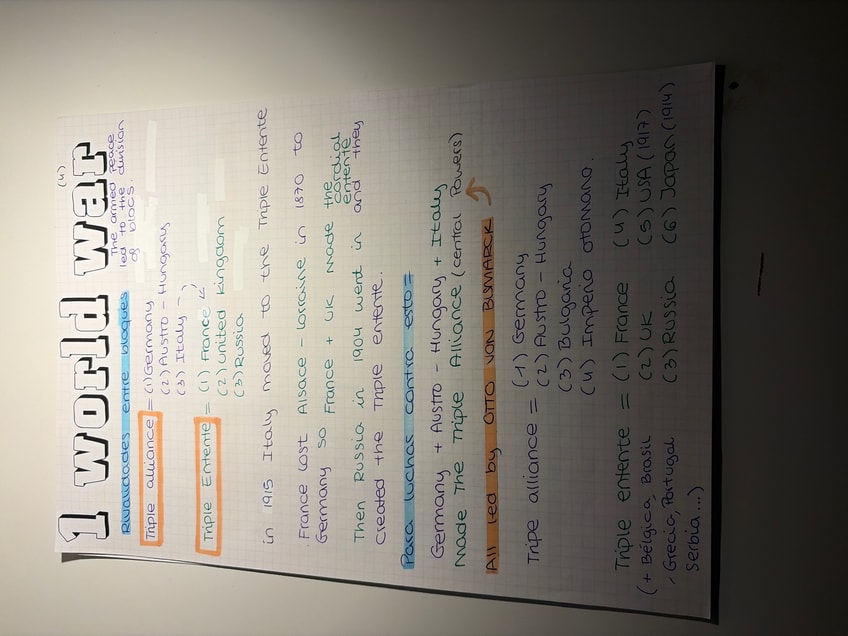 (4)
1 world war
Rivalidades entre bloques The armed peace
led to the division
of blocs.
Triple alliance = (1) Germany
(2) Austro - Hungary
(3) Italy
Triple Entente = (1) France
(2) United Kingdom
(3) Russia
in 1915 Italy moved to the Triple Entente
. France lost Alsace - Lorraine in 1870 to
Germany so France + UK made the cordial
entente
Then Russia in 1904 went in and they
created the Triple entente.
Para luchas contra esto =
Germany + Austro - Hungary + Italy
Made The Triple Alliance (central Powers)
All led by OTTO VON BISMARCK
Tripe alliance = (1) Germany
(2) Austro - Hungary
(3) Bulgaria
(4) Imperio otomano.
Triple entente = (1) France (4) Italy
(+ Bélgica, Brasil (2) UK (5) USA (1917)
, Grecia, Portugal (3) Russia (6) Japan (1914)
Serbia...)